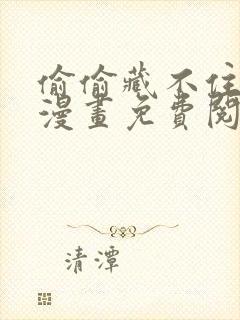 偷偷藏不住
漫畫免費閱
清潭